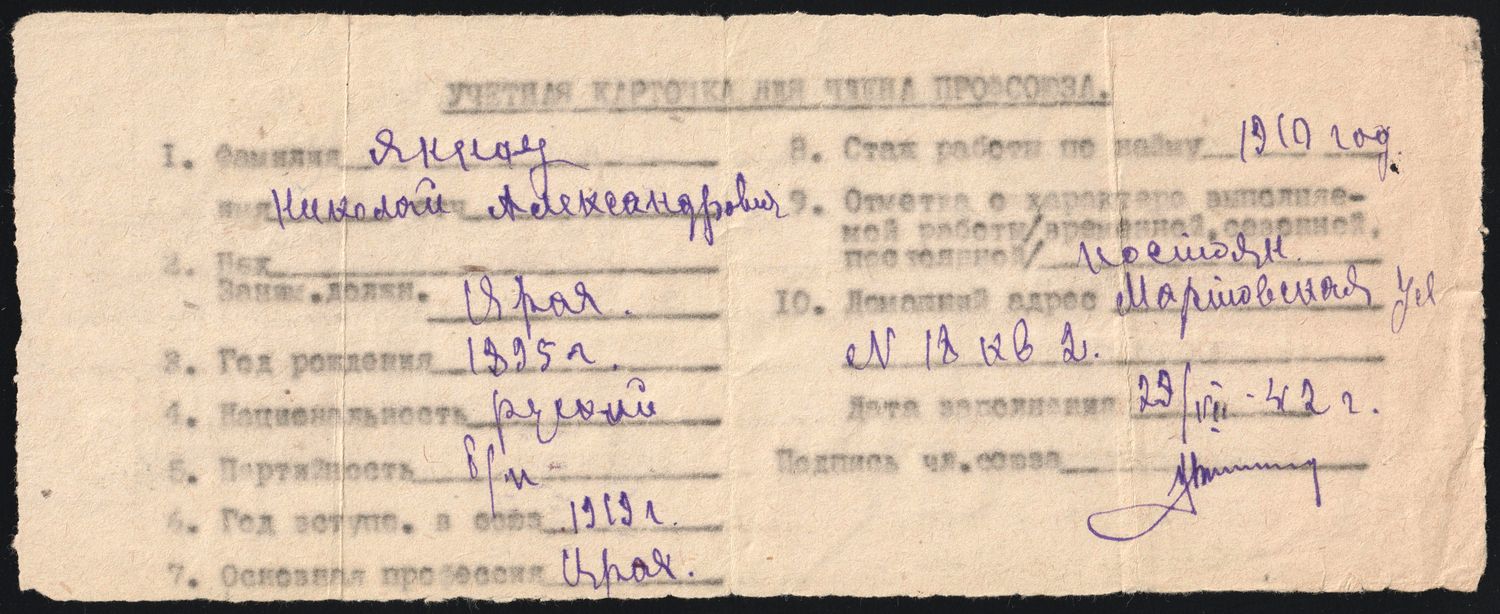 УЧЕТНАЯ КАРТОЧКА ДЛЯ ЧЛЕНА ПРОФСОЮЗА.
1. Фамилия
Николай Александрович
2. Пол
Заним.должн.
3. Год рождения 1895 г.
4. Национальность руский
5. Партийность б/п
6. Год вступл. в союз 1919 г.
7. Основная профессия
8. Стаж работы по найму 1910 год.
9. Отметка о характере выполняе-
мой работы/временной,сезонной,
постоянной/ постоян.
10. Домашний адрес Мартовская ул
N 18 кв 2.
Дата заполнения 29/VII-42 г.
Подпись чл.союза